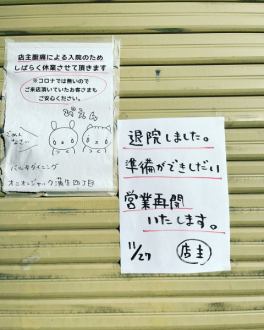 店主腰痛による入院のため
しばらく休業させて頂きます
※コロナでは無いので
ご来店頂いていたお客さまも
ご安心ください。
ぴえん
ごめん
なさい
バル&ダイニング
オニオンジャック蒲生四丁目
退院しました。
準備ができしだい
営業再開
いたします。
11/27
店主